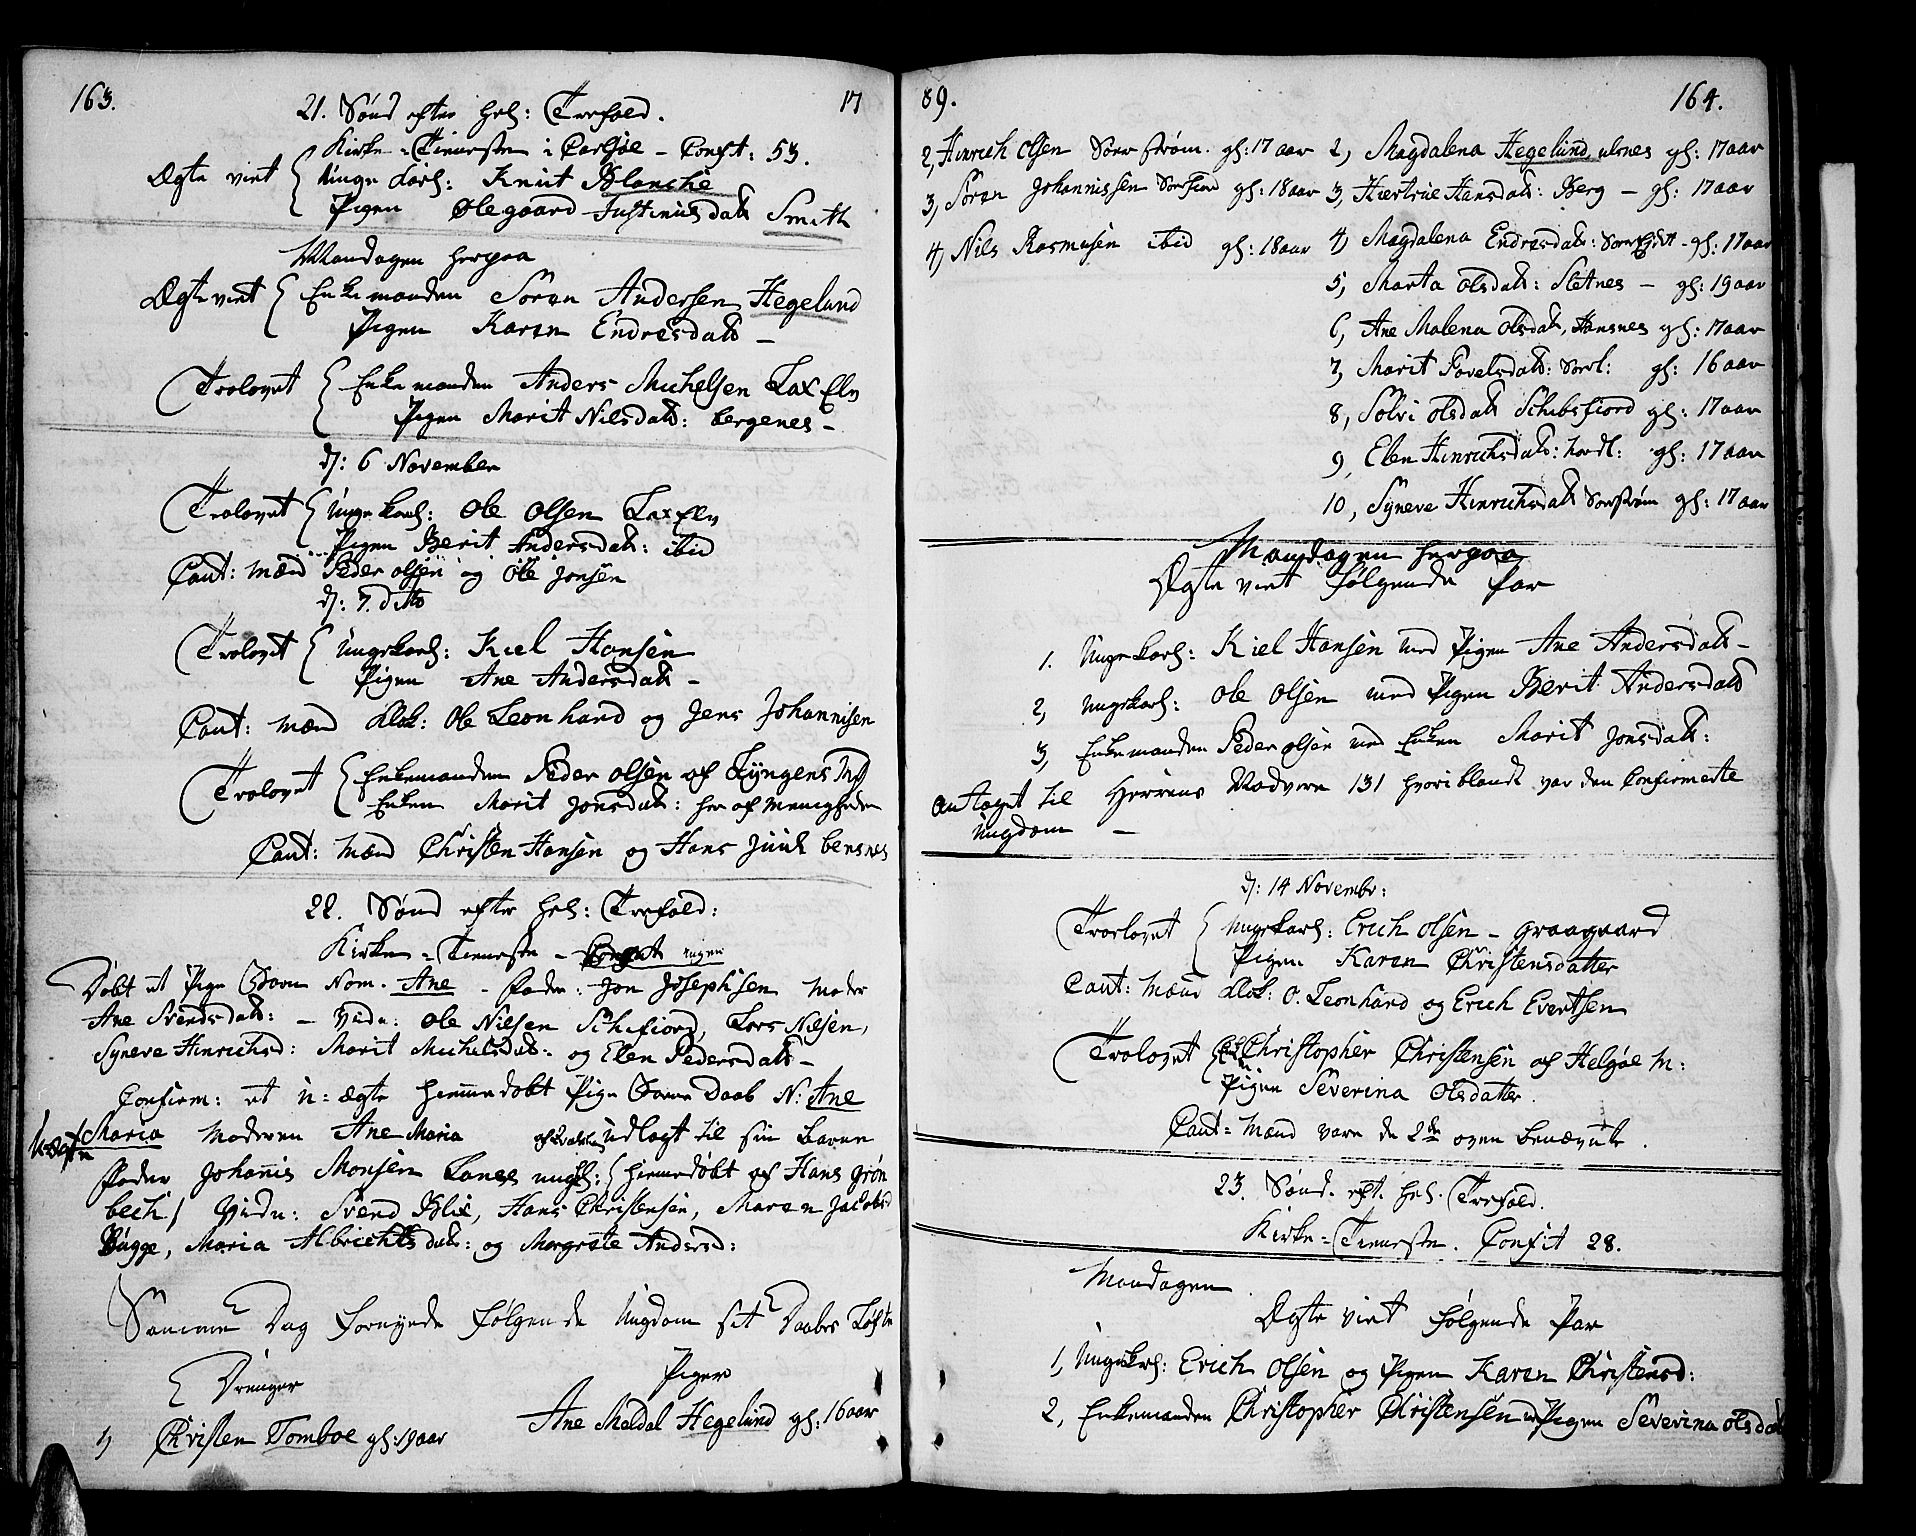 163.
17
21. Sønd efter hel: Trefold.
Kirke-Tieneste i Carlsøe - Confit: 53.
Ægte viet { Unge Karl: Knut Blanche
Pigen Olegaard Justinusdatt Smith
Mandagen herpaa
Ægte viet { Enkemanden Søren Andersen Hegelund
Pigen Karen Endresdatt -
Trolovet { Enkemanden Anders Michelsen LaxElv
Pigen Marit Nilsdatt: bergenes -
d: 6 November
Trolovet { Ungekarl: Ole Olsen LaxElv
Pigen Berit Andersdatt: ibid
Caut: Mænd Peder Olsen og Ole Jonsen
d: 7. dito
Trolovet { Ungekarl: Kiel Hansen
Pigen Ane Andersdatt -
Caut: Mænd Klok: Ole Leonhard og Jens Johannisen
Trolovet { Enkemanden Peder Olsen af Lyngens
Enken Marit Jonsdatt: her af Menigheden
Caut: Mænd Christen Hansen og Hans Juul bensnes
22. Sønd efter hel: Trefold:
Kirke-Tieneste - Confit ingen
Døbt et Pige Barn Nom. Ane - Fader: Jon Josephsen Moder
Ane Svendsdatt: - Vidn: Ole Nilsen Schifiord, Lars Nilsen,
Syneve Hinrichsd: Marit Michelsdatt: og Elen Pedersdatt -
Confirm: et u-ægte hiemmedøbt Pige Barns Daab N: Ane
Maria Moderen Ane Maria udlagt til sin Barne
Uægte
Fader Johannis Monsen Lanes ungk: / hiemmedøbt af Hans Grøn
bech / Vidn: Svend Blix, Hans Christensen, Maren Jacobsd
Bugge, Maria Albrichtsdatt: og Margrete Andersd:
Samme Dag fornyede følgende Ungdom sit Daabes Løfte
Drenger
Piger
1) Christen Tomboe gl: 19 aar
Ane Meldal Hegelund gl: 16 aar
89.
164.
2, Hinrich Olsen Sørstrøm. gl: 17 aar
2, Magdalena Hegelund, ulsnes gl: 17 aar
3, Søren Johannissen Sørfiord gl: 18 aar
3, Hiertrue Hansdatt: Berg - gl: 17 aar
4, Nils Rasmusen ibid gl: 18 aar
4, Magdalena Endresdatt: gl: 17 aar
5, Marta Olsdatt: Sletnes - gl: 19 aar
6, Ane Malena Olsdatt, Hansnes gl: 17 aar
7, Marit Povelsdatt: gl: 16 aar
8, Sølvi Olsdatt Schibsfiord gl: 17 aar
9, Elen Hinrichsdatt: gl: 17 aar
10, Syneve Hinrichsdatt Sørstrøm gl: 17 aar
Mandagen herpaa
Ægte viet følgende Par
1. Ungekarl: Kiel Hansen med Pigen Ane Andersdatt -
2, Ungekarl: Ole Olsen med Pigen Berit Andersdatt
3, Enkemanden Peder Olsen med Enken Marit Jonsdatt:
antaget til Herrens Nadvere 131 hvoriblandt var den Confirmerte
Ungdom -
d: 14 Novembr:
Trolovet { Ungekarl: Erich Olsen - graagaard
Pigen Karen Christensdatter
Caut: Mænd Klok: O. Leonhard og Erich Evertsen
Trolovet { Christopher Christensen af Helgøe M:
Pigen Severina Olsdatter.
Caut: Mænd vare de 2de oven benævnte.
23. Sønd. eft. hel. Trefold.
Kirke-Tieneste. Confit 28.
Mandagen.
Ægte viet følgende Par
1, Ungekarl: Erich Olsen og Pigen Karen Christensd:
2, Enkemanden Christopher Christensen Pigen Severina Olsdatt